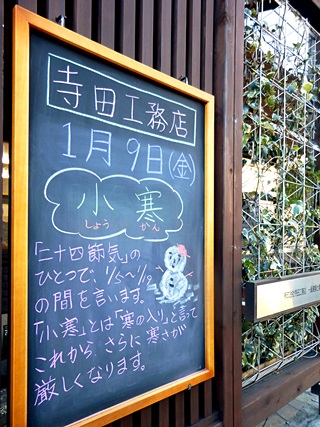 寺田工務店
1月9日(金)
小寒
しょう かん
「二十四節気」の
ひとつで、1/5〜1/19
の間を言います。
「小寒」とは「寒の入り」と言って
これから、さらに寒さが
厳しくなります。